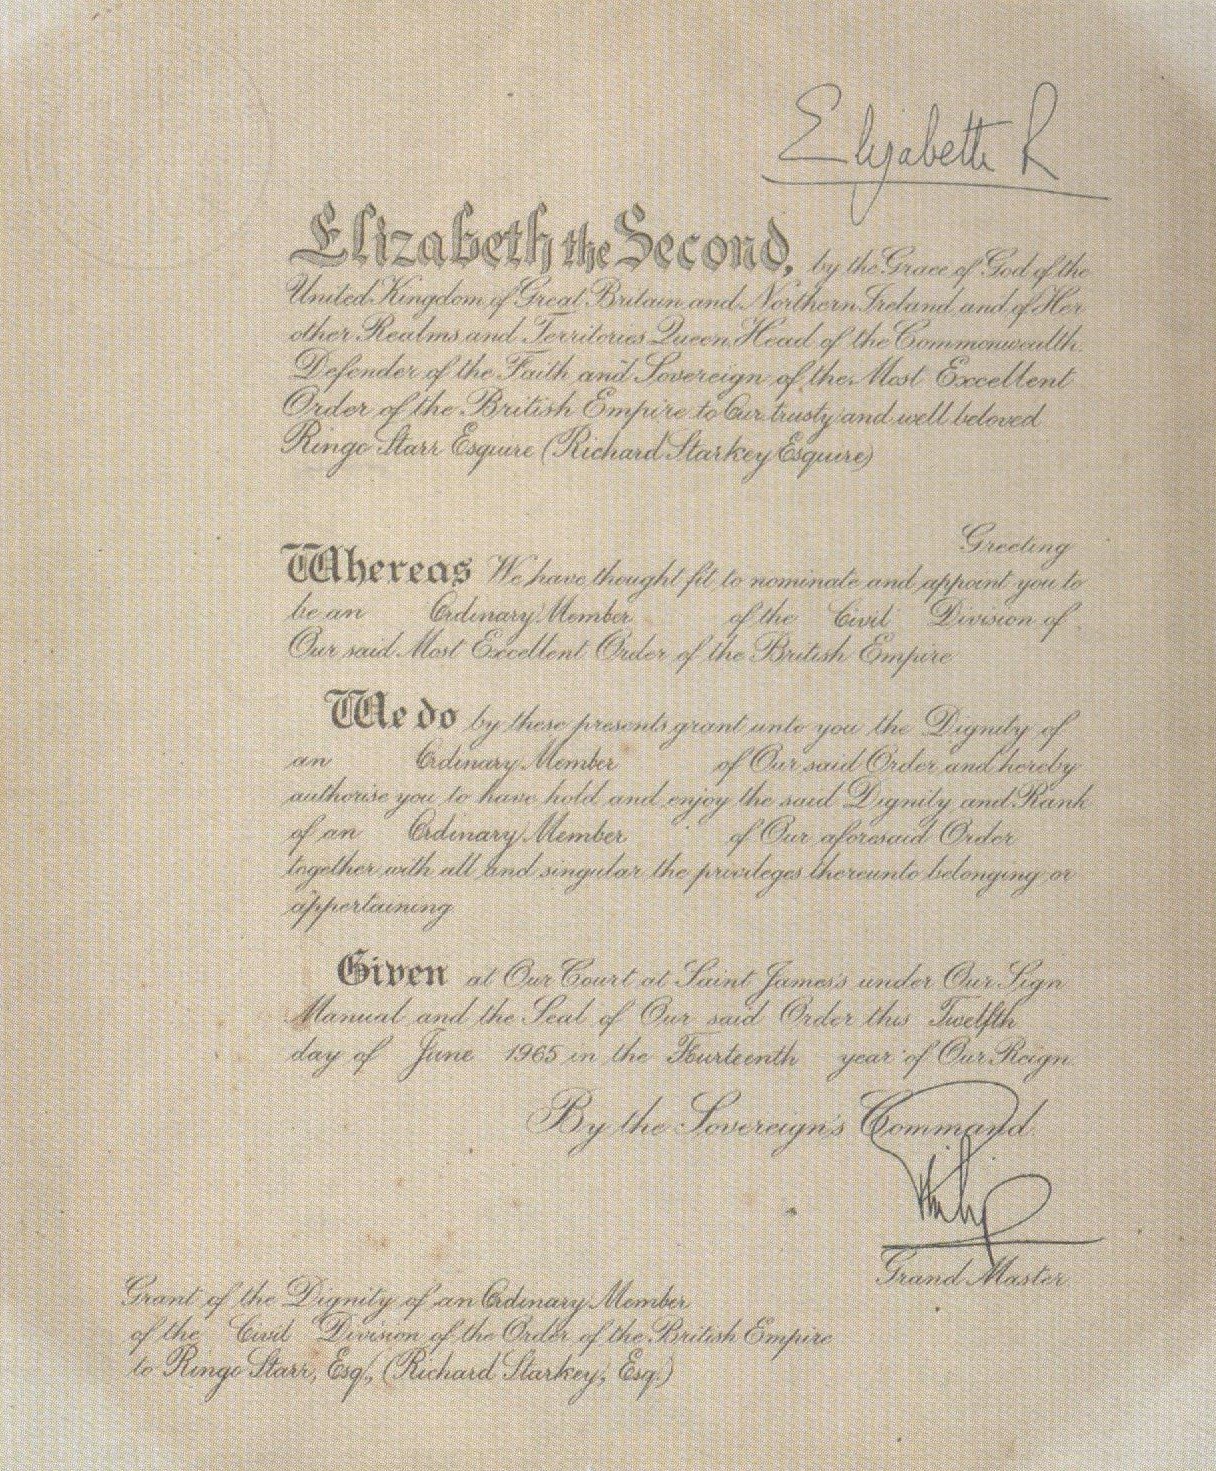 Elizabeth R
Elizabeth the Second, by the Grace of God of the
United Kingdom of Great Britain and Northern Ireland and of Her
other Realms and Territories Queen, Head of the Commonwealth,
Defender of the Faith and Sovereign of the Most Excellent
Order of the British Empire to Our trusty and well beloved
Ringo Starr Esquire (Richard Starkey Esquire)
Greeting
Whereas We have thought fit to nominate and appoint you to
be an Ordinary Member of the Civil Division of
Our said Most Excellent Order of the British Empire
We do by these presents grant unto you the Dignity of
an Ordinary Member of Our said Order and hereby
authorise you to have hold and enjoy the said Dignity and Rank
of an Ordinary Member of Our aforesaid Order
together with all and singular the privileges thereunto belonging or
appertaining
Given at Our Court at Saint James's under Our Sign
Manual and the Seal of Our said Order this Twelfth
day of June 1965 in the Fourteenth year of Our Reign.
By the Sovereign's Command.
Philip
Grand Master
Grant of the Dignity of an Ordinary Member
of the Civil Division of the Order of the British Empire
to Ringo Starr, Esq., (Richard Starkey, Esq.)